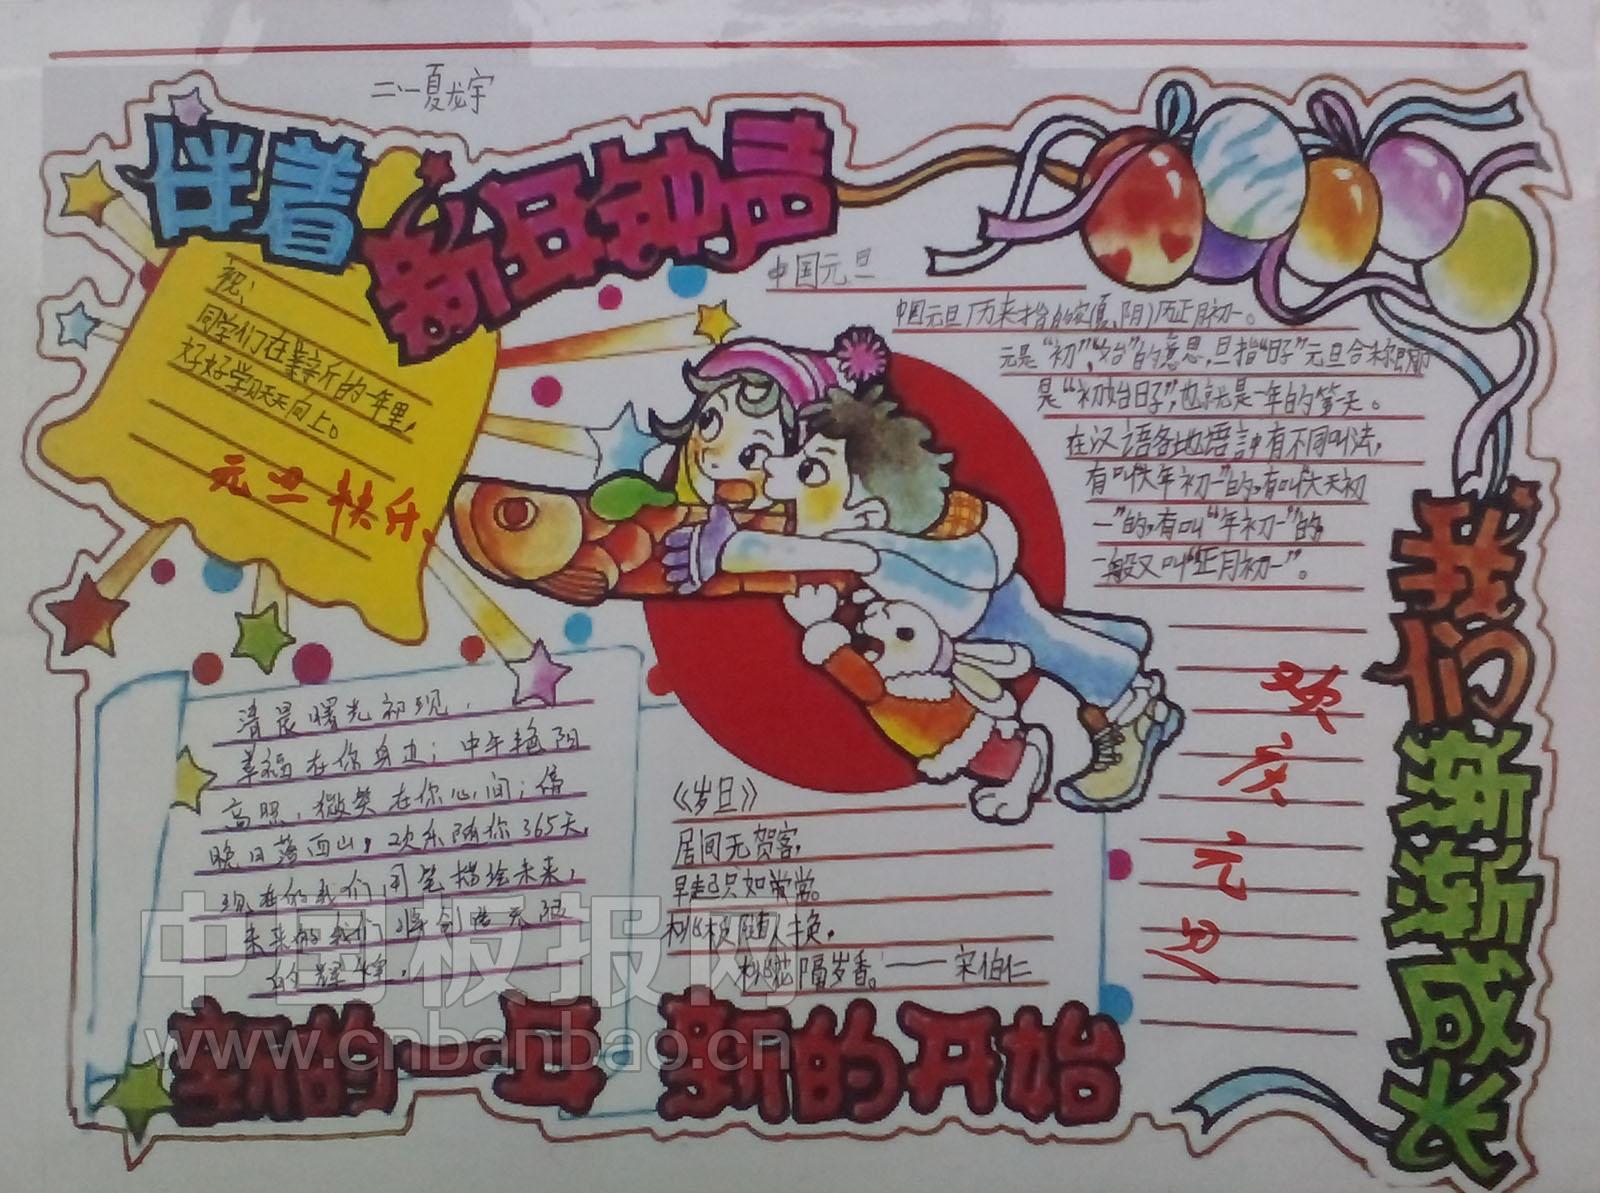 二、一夏龙宇
伴着
新年钟声
祝:
同学们在崭新的一年里,
好好学习天天向上。
元旦快乐、
中国元旦
中国元旦历来指的实夏、阴)历正月初一。
元是“初”、“始”的意思,旦指“日子”元旦合称即
是“初始日子”,也就是一年的第一天。
在汉语各地语言中有不同叫法,
有叫“大年初一”的,有叫“大天初
一”的,有叫“年初一”的,
一般又叫“正月初一”。
欢庆元旦
我们渐渐成长
清晨曙光初现,
幸福在你身边;中午艳阳
高照,微笑在你心间;傍
晚日落西山,欢乐随你365天,
现在的我们用笔描绘未来,
未来的我们将创造无限
的辉煌.
《岁旦》
居间无贺客,
早起只如常。
桃板随人换,
桃花隔岁香。——宋伯仁
全新的一年 新的开始
中国板报网
www.cnbanbao.cn